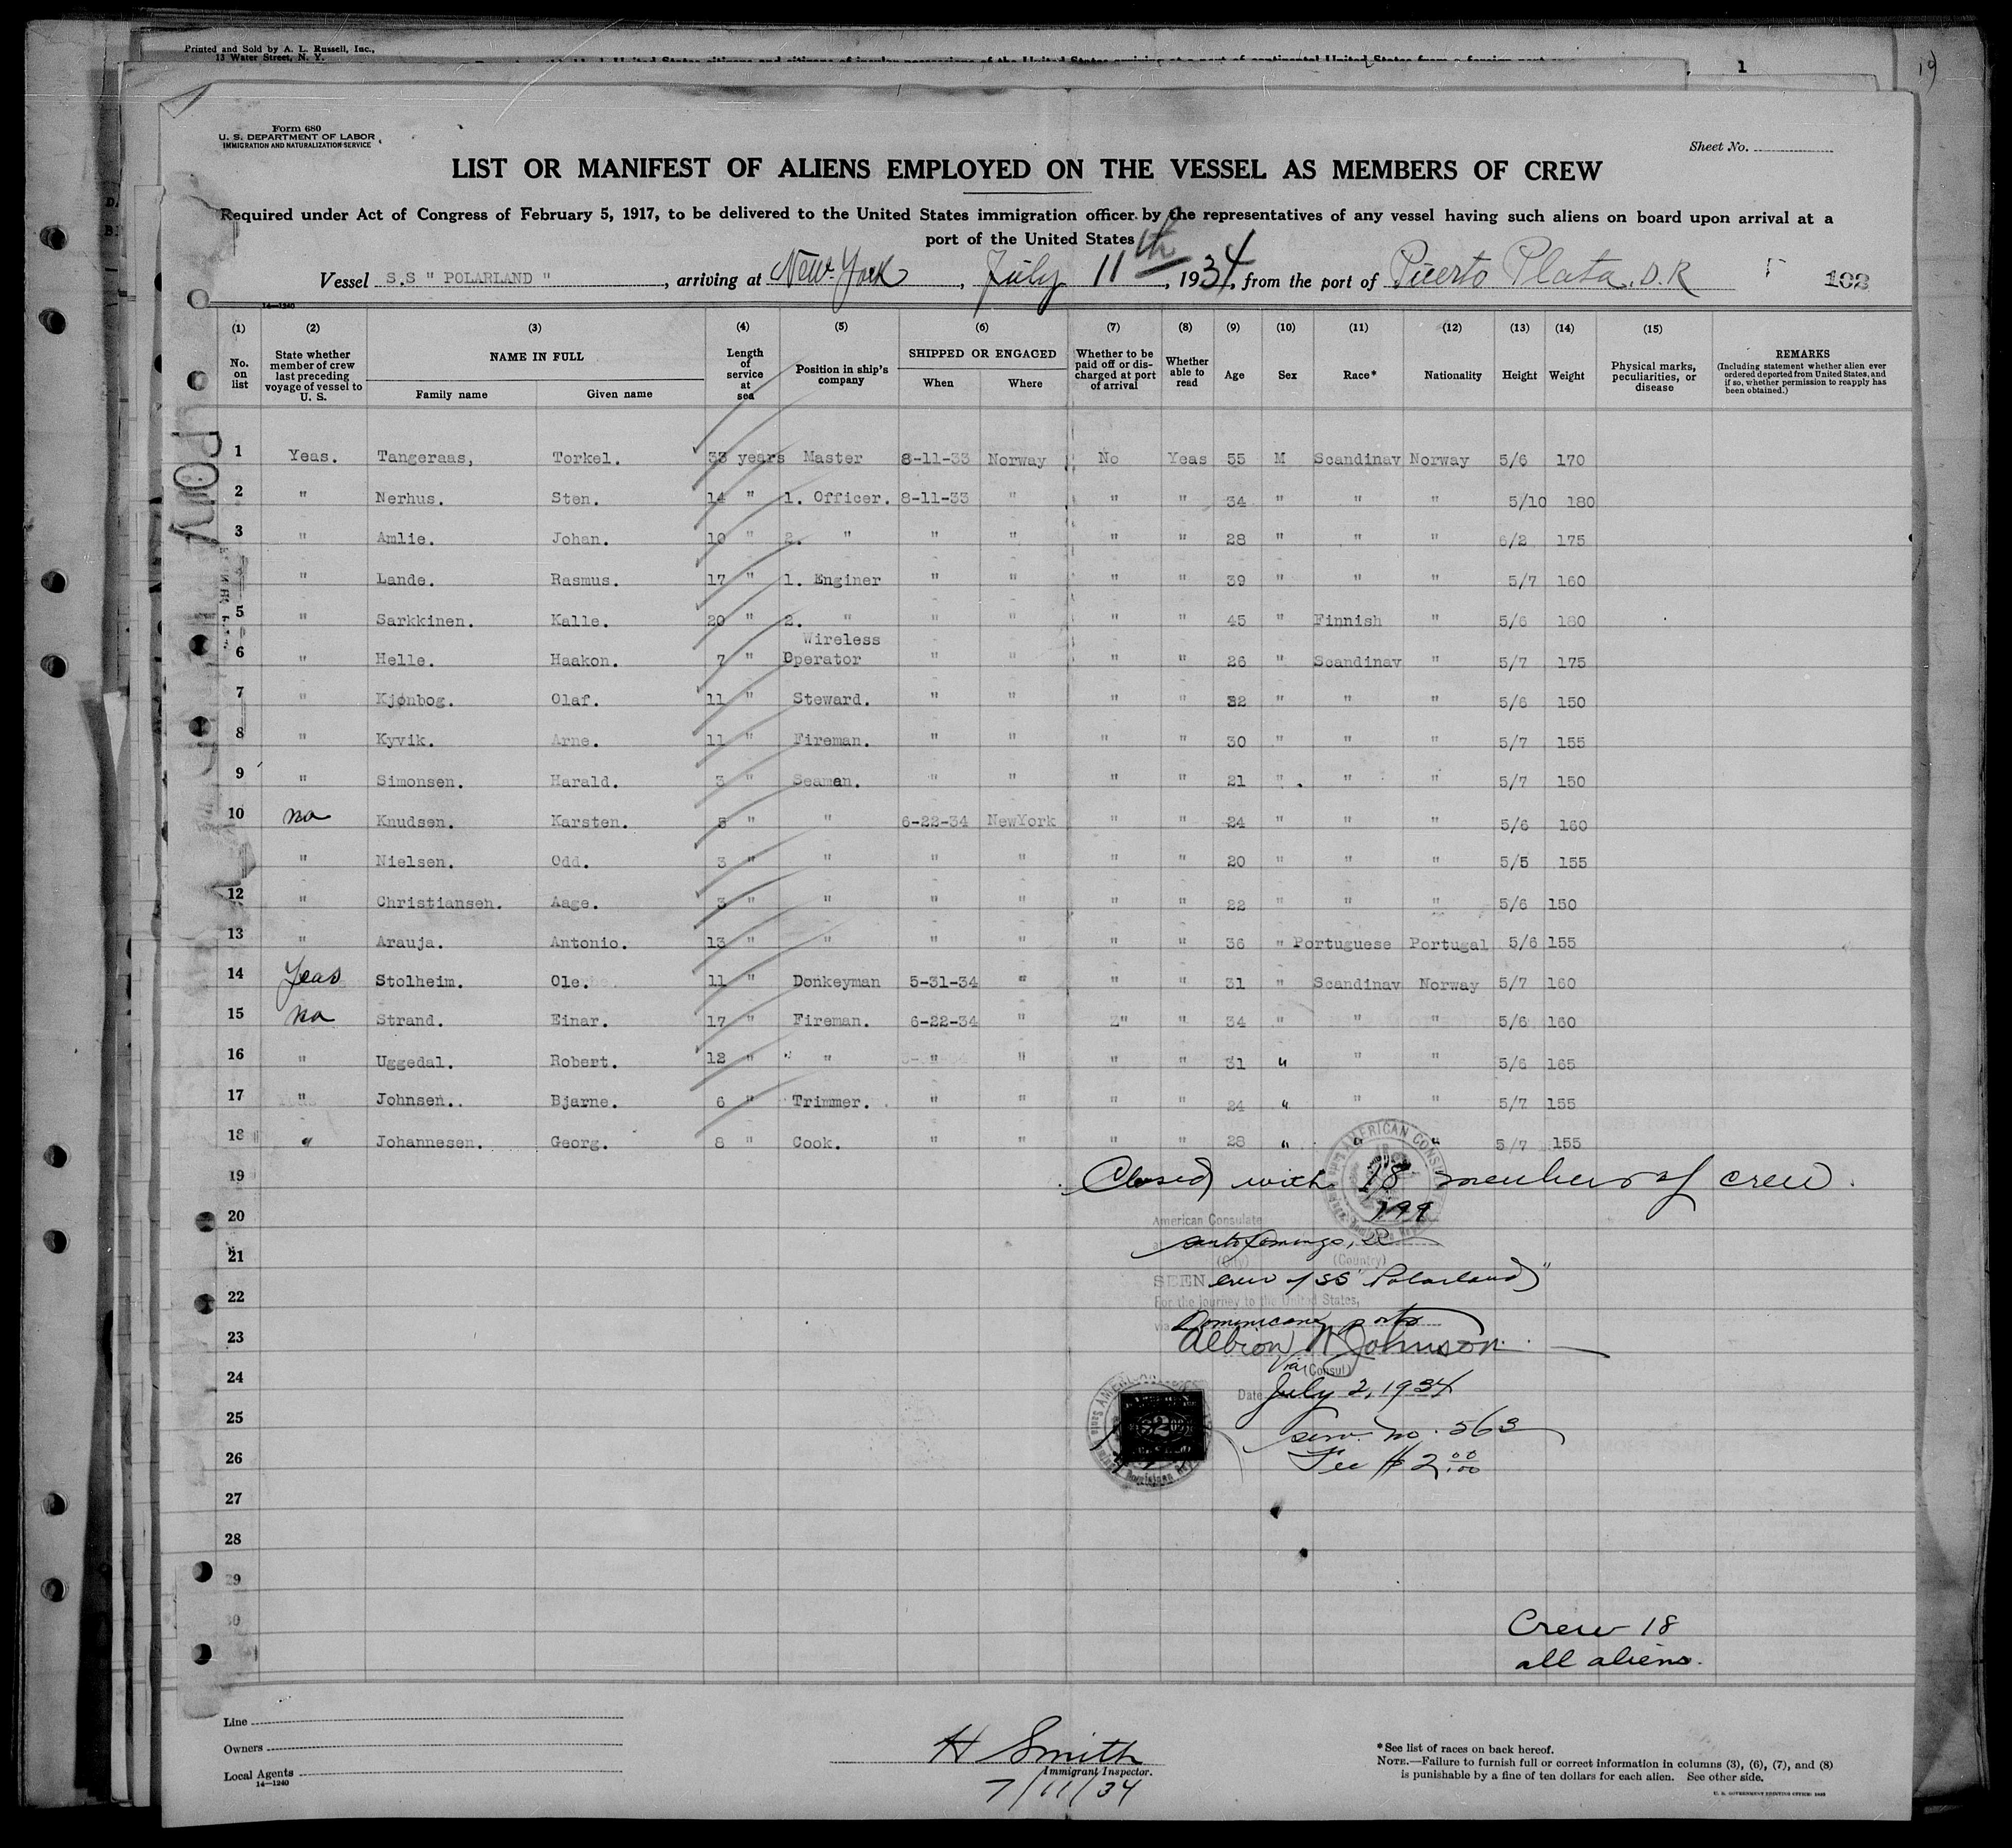 Printed and Sold by A. L. Russell, Inc.,
13 Water Street, N. Y.
1
19
Form 680
U. S. DEPARTMENT OF LABOR
IMMIGRATION AND NATURALIZATION SERVICE
Sheet No.
LIST OR MANIFEST OF ALIENS EMPLOYED ON THE VESSEL AS MEMBERS OF CREW
Required under Act of Congress of February 5, 1917, to be delivered to the United States immigration officer by the representatives of any vessel having such aliens on board upon arrival at a
port of the United States
Vessel S.S " POLARLAND ", arriving at New York, July 11th, 1934, from the port of Puerto Plata, D.R 102
14—1240
(1) (2) (3) (4) (5) (6) (7) (8) (9) (10) (11) (12) (13) (14) (15)
No. on list | State whether member of crew last preceding voyage of vessel to U. S. | NAME IN FULL Family name Given name | Length of service at sea | Position in ship's company | SHIPPED OR ENGAGED When Where | Whether to be paid off or discharged at port of arrival | Whether able to read | Age | Sex | Race* | Nationality | Height | Weight | Physical marks, peculiarities, or disease | REMARKS (Including statement whether alien ever ordered deported from United States, and if so, whether permission to reapply has been obtained.)
1 Yeas. Tangeraas, Torkel. 33 years Master 8-11-33 Norway No Yeas 55 M Scandinav Norway 5/6 170
2 " Nerhus. Sten. 14 " 1. Officer. 8-11-33 " " " 34 " " " 5/10 180
3 " Amlie. Johan. 10 " 2. " " " " " 28 " " " 6/2 175
" Lande. Rasmus. 17 " 1. Enginer " " " " 39 " " " 5/7 160
5 " Sarkkinen. Kalle. 20 " 2. " " " " " 45 " Finnish " 5/6 180
6 " Helle. Haakon. 7 " Wireless Operator " " " " 26 " Scandinav " 5/7 175
7 " Kjønbog. Olaf. 11 " Steward. " " " " 32 " " " 5/6 150
8 " Kyvik. Arne. 11 " Fireman. " " " " 30 " " " 5/7 155
9 " Simonsen. Harald. 3 " Seaman. " " " " 21 " " " 5/7 150
10 no Knudsen. Karsten. " " 6-22-34 NewYork " " 24 " " " 5/6 160
" Nielsen. Odd. 3 " " " " " " 20 " " " 5/5 155
12 " Christiansen. Aage. 3 " " " " " " 22 " " " 5/6 150
13 " Arauja. Antonio. 13 " " " " " " 36 " Portuguese Portugal 5/6 155
14 Yeas Stolheim. Ole. 11 " Donkeyman 5-31-34 " " " 31 " Scandinav Norway 5/7 160
15 no Strand. Einar. 17 " Fireman. 6-22-34 " " " 34 " " " 5/6 160
16 " Uggedal. Robert. 12 " " " " " " 31 " " " 5/6 165
17 " Johnsen. Bjarne. 6 " Trimmer. " " " " 24 " " " 5/7 155
18 " Johannesen. Georg. 8 " Cook. " " " " 28 " " " 5/7 155
19 Closed with 18 members of crew.
20 American Consulate
21 Santo Domingo, D.R.
(City) (Country)
22 SEEN crew of SS "Polarland"
For the journey to the United States,
23 via Dominican ports
Albion W Johnson
24 Vice (Consul)
Date July 2, 1934
25 Serv. no. 563
26 Fee $ 2 00/100
27
28
29
30
Crew 18
all aliens.
Line
Owners
Local Agents
14—1240
H Smith
Immigrant Inspector.
7/11/34
*See list of races on back hereof.
NOTE.—Failure to furnish full or correct information in columns (3), (6), (7), and (8)
is punishable by a fine of ten dollars for each alien. See other side.